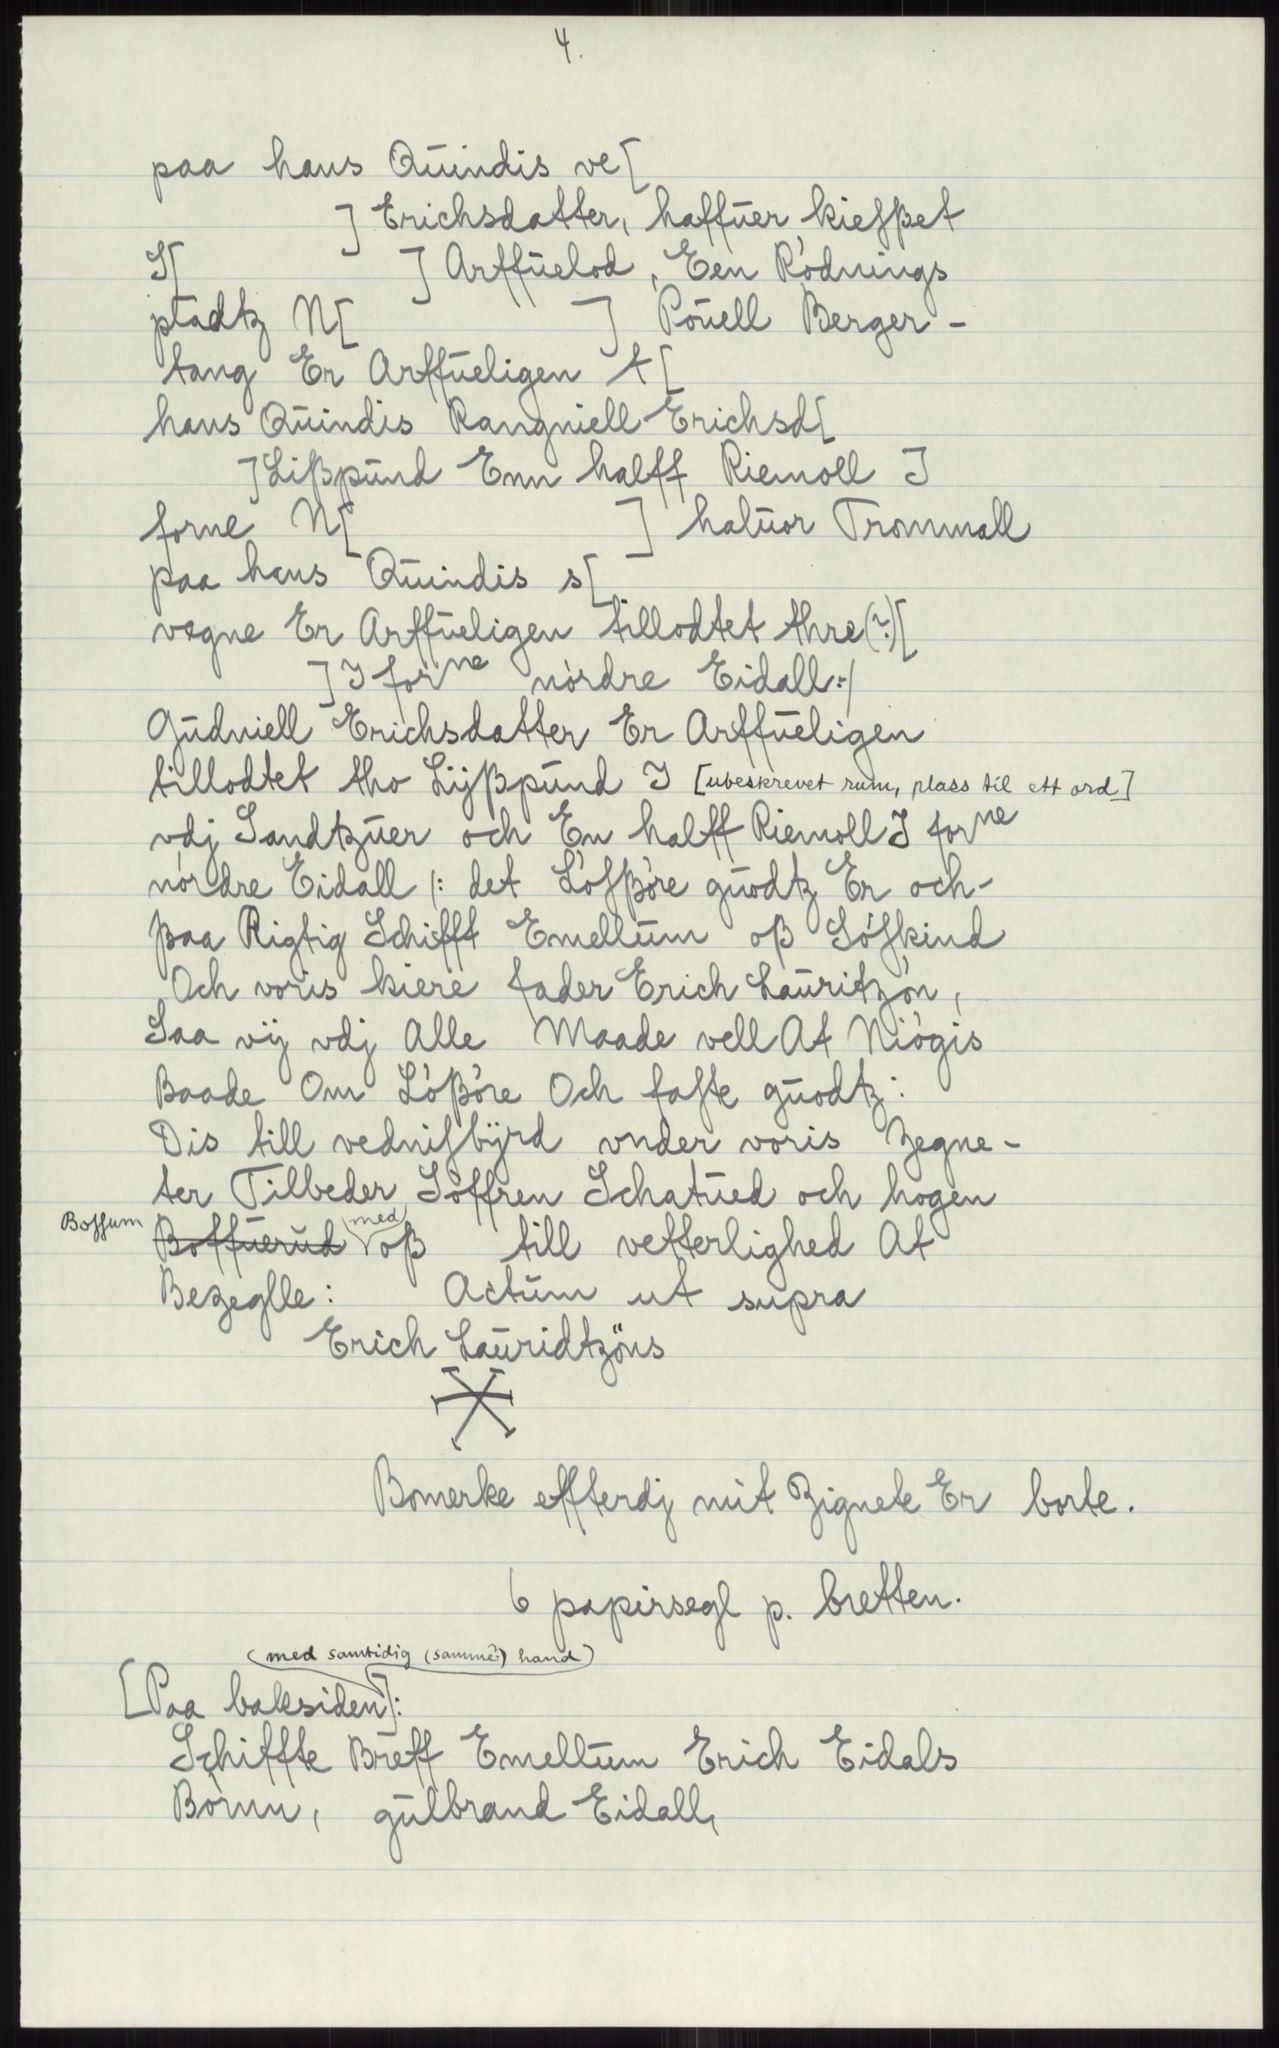 4.
paa hans Quindis ve[
] Erichsdatter, haffuer kieſßet
I[ ] Arffuelod, Een Rødnings
pladtz N[ ] Pouell Berger-
tang Er Arffueligen t[
hans Quindis Rangniell Erichsd[
] Lißpund Enn halff Riemoll I
forne N[ ] haluor Trommall
paa hans Quindis s[
vegne Er Arffueligen tillodtet thre(?)[
] I forne nørdre Eidall:/
Gudniell Erichsdatter Er Arffueligen
tillodtet tho Lÿßpund I [ubeskrevet rum, plass til ett ord]
vdj Sandtzuer och En halff Riemoll I forne
nørdre Eidall /: det Løſßøre guodtz Er och-
ßaa Rigtig Schifft Emellum oß Søſkind
Och voris kiere fader Erich Lauritzøn,
Saa vÿ vdj Alle Maade vell At Niøgis
Baade Om Løßøre Och faſte guodtz:
Dis till vedniſbÿrd vnder voris Zegne-
ter Tilbeder Søffren Schatued och hogen
Boſſum Boffuerud med oß till vetterlighed At
Bezeglle: Actum ut supra
Erich Lauridtzöns
Bomerke effterdj mit Zignete Er borte.
6 papirsegl p. bretten.
(med samtidig (samme?) hand)
[Paa baksiden]:
Schiffte Breff Emellum Erich Eidals
Børnn, gulbrand Eidall,